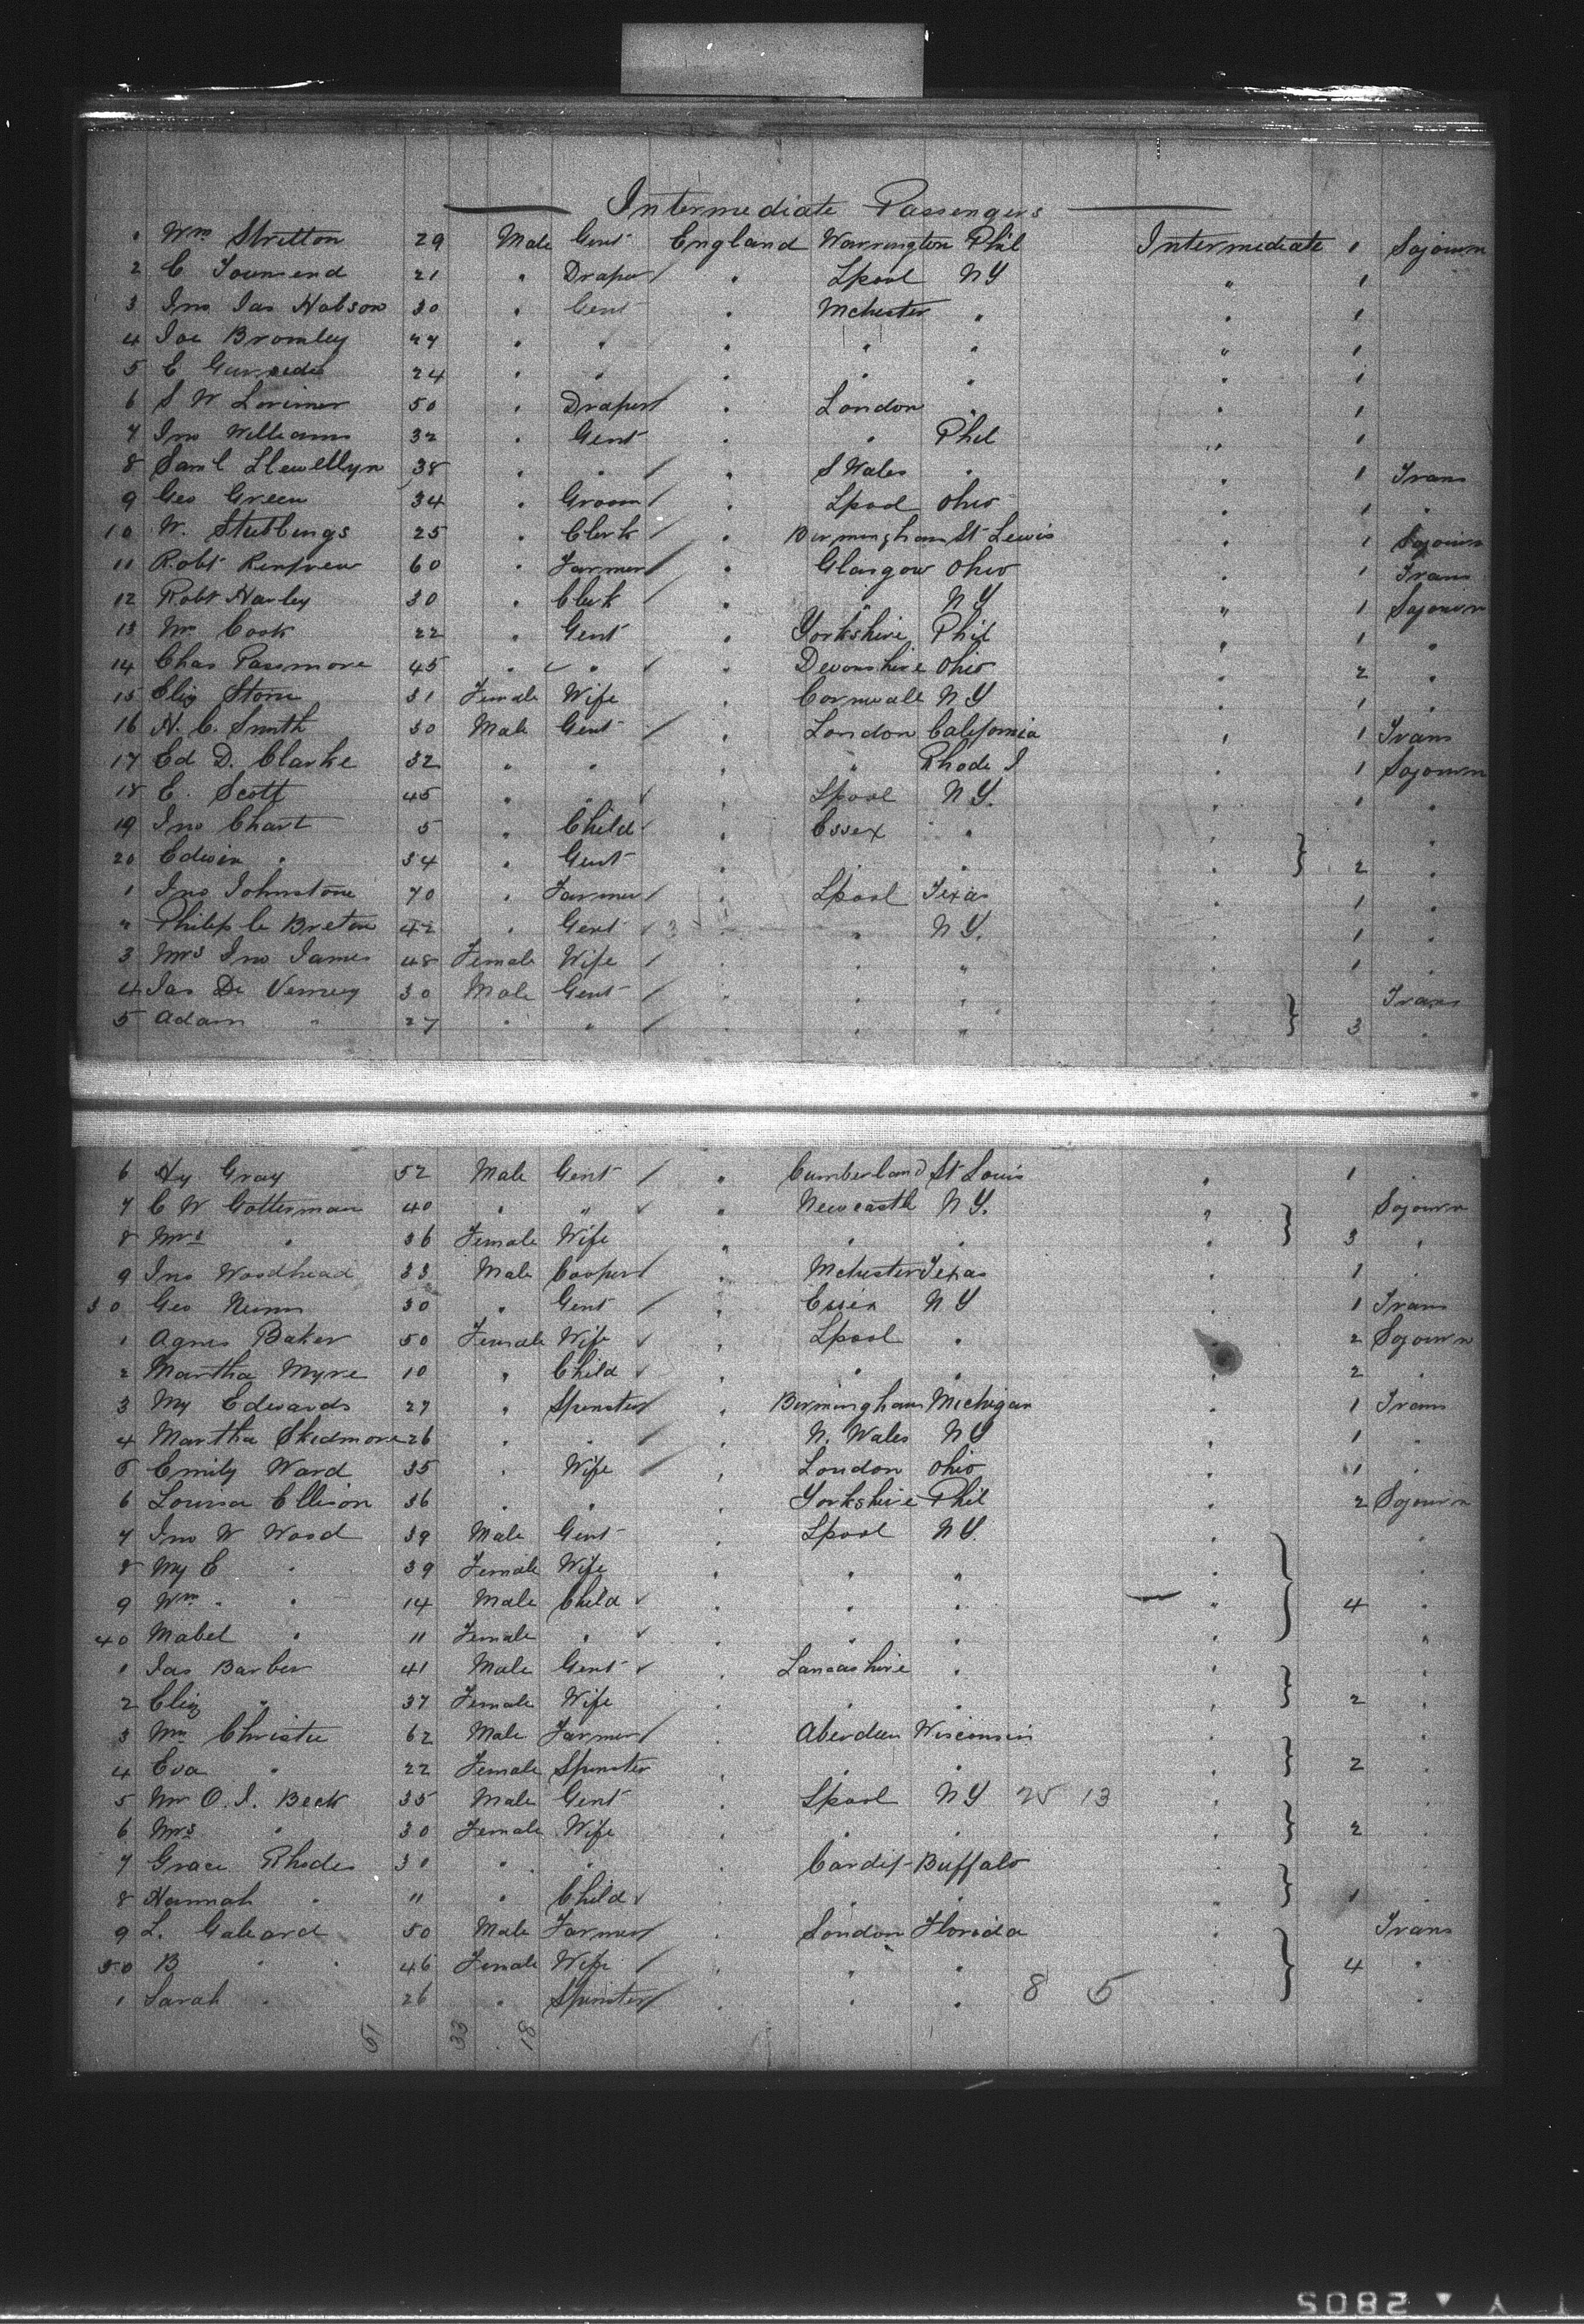 Intermediate Passengers
1 Wm Stretton 29 Male Gent England Warrington Phil Intermediate 1 Sojourn
2 C Townsend 21 " Draper " Lpool NY " 1
3 Jno Jas Hobson 30 " Gent " Mchester " " 1
4 Joe Bromley 27 " " " " " " 1
5 E 24 " " " " " " 1
6 S W Lorimer 50 " Draper " London " " 1
7 Jno Williams 32 " Gent " " Phil " 1
8 Saml Llewellyn 38 " " " S Wales " " 1 Trans
9 Geo Green 34 " Groom " Lpool Ohio " 1 "
10 W. Stubbings 25 " Clerk " Birmingham St Lewis " 1 Sojourn
11 Robt Renfrew 60 " Farmer " Glasgow Ohio " 1 Trans
12 Robt Harley 30 " Clerk " " NY " 1 Sojourn
13 Cook 22 " Gent " Yorkshire Phil " 1 "
14 Chas Passmore 45 " " " Devonshire Ohio " 2 "
15 Eliz Stone 31 Female Wife " Cornwall NY " 1 "
16 H. C. Smith 30 Male Gent " London California " 1 Trans
17 Ed D. Clarke 32 " " " " Rhode I " 1 Sojourn
18 E. Scott 45 " " " Lpool NY. " 1 "
19 Jno Chart 5 " Child " Essex " " "
20 Edwin " 34 " Gent " " " " 2 "
1 Jno Johnstone 70 " Farmer " Lpool Texas " 1 "
" Philip le Breton 42 " Gent 3 " " NY. " 1 "
3 Mrs Jno James 48 Female Wife " " " " 1 "
4 Jas De Verney 30 Male Gent " " " " Trans
5 Adam " 27 " " " " " " 3 "
6 Hy Gray 52 Male Gent " Cumberland St Louis " 1
7 C W Gotterman 40 " " " Newcastle NY. " Sojourn
8 Mrs " 36 Female Wife " " " " 3 "
9 Jno Woodhead 33 Male Cooper " Mchester Texas " 1 "
30 Geo Nunn 30 " Gent " Essex NY " 1 Trans
1 Agnes Baker 50 Female Wife " Lpool " 2 Sojourn
2 Martha Myre 10 " Child " " " " 2 "
3 My Edwards 27 " Spinster " Birmingham Michigan " 1 Trans
4 Martha Skedmore 26 " " " N. Wales NY " 1 "
5 Emily Ward 35 " Wife " London Ohio " 1 "
6 Louisa Ellison 36 " " " Yorkshire Phil " 2 Sojourn
7 Jno W Wood 39 Male Gent " Lpool NY. " "
8 My E " 39 Female Wife " " " " "
9 Wm " " 14 Male Child " " " " 4 "
40 Mabel " 11 Female " " " " " "
1 Jas Barber 41 Male Gent " Lancashire " " "
2 Eliz " 37 Female Wife " " " " 2 "
3 Wm Christie 62 Male Farmer " Aberdeen Wisconsin " "
4 Eva " 22 Female Spinster " " " " 2 "
5 Mr O. J. Beck 35 Male Gent " Lpool NY 25 13 " "
6 Mrs " 30 Female Wife " " " " 2 "
7 Grace Rhodes 30 " " " Cardif Buffalo " "
8 Hannah " 11 " Child " " " " 1 "
9 L. 50 Male Farmer " London Florida " Trans
50 B " " 46 Female Wife " " " " 4 "
1 Sarah " 26 " Spinster " " " 8 5 " "
51 33 18
5082